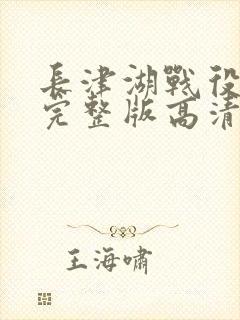 長津湖戰役
完整版高清
王海嘯